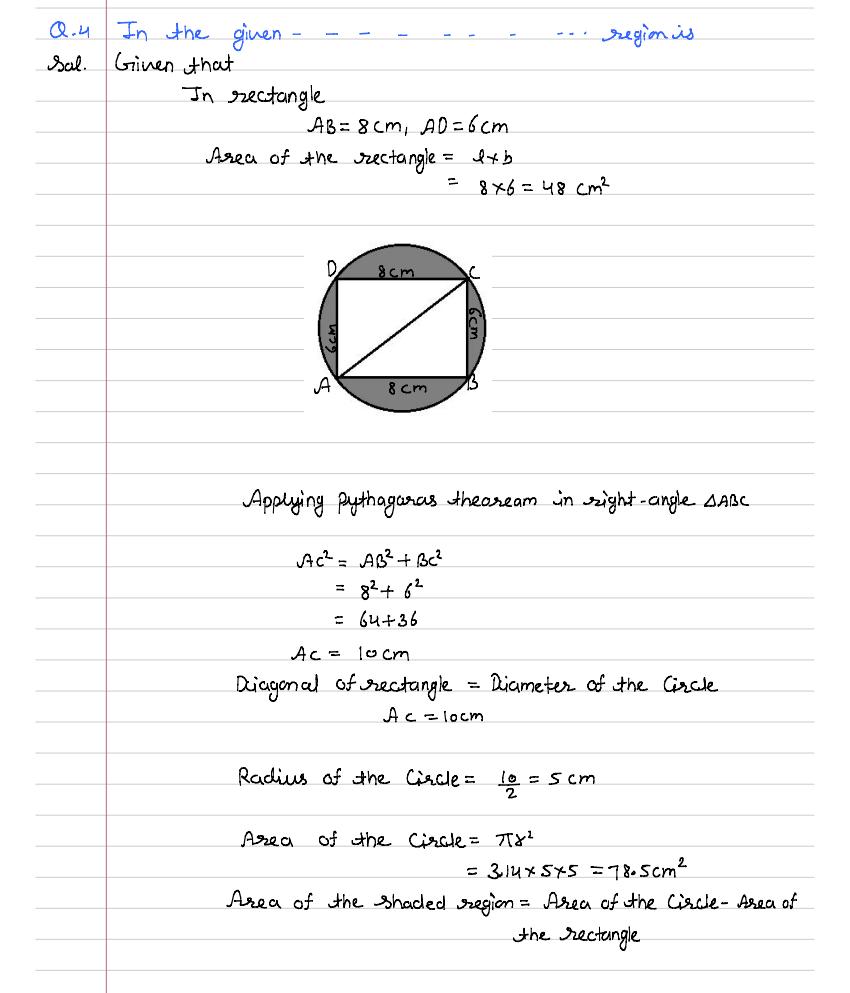 Q.4 In the given - - - - - - - - - ... region is
Sol. Given that
In rectangle
AB = 8 cm, AD = 6 cm
Area of the rectangle = l × b
= 8×6 = 48 cm²
D 8cm C
6cm 6cm
A 8 cm B
Applying pythagoras theoream in right-angle ΔABC
AC² = AB² + BC²
= 8² + 6²
= 64+36
AC = 10 cm
Diagonal of rectangle = Diameter of the Circle
AC = 10cm
Radius of the Circle = 10/2 = 5 cm
Area of the Circle = πr²
= 3.14 × 5×5 = 78.5cm²
Area of the shaded region = Area of the Circle - Area of
the rectangle